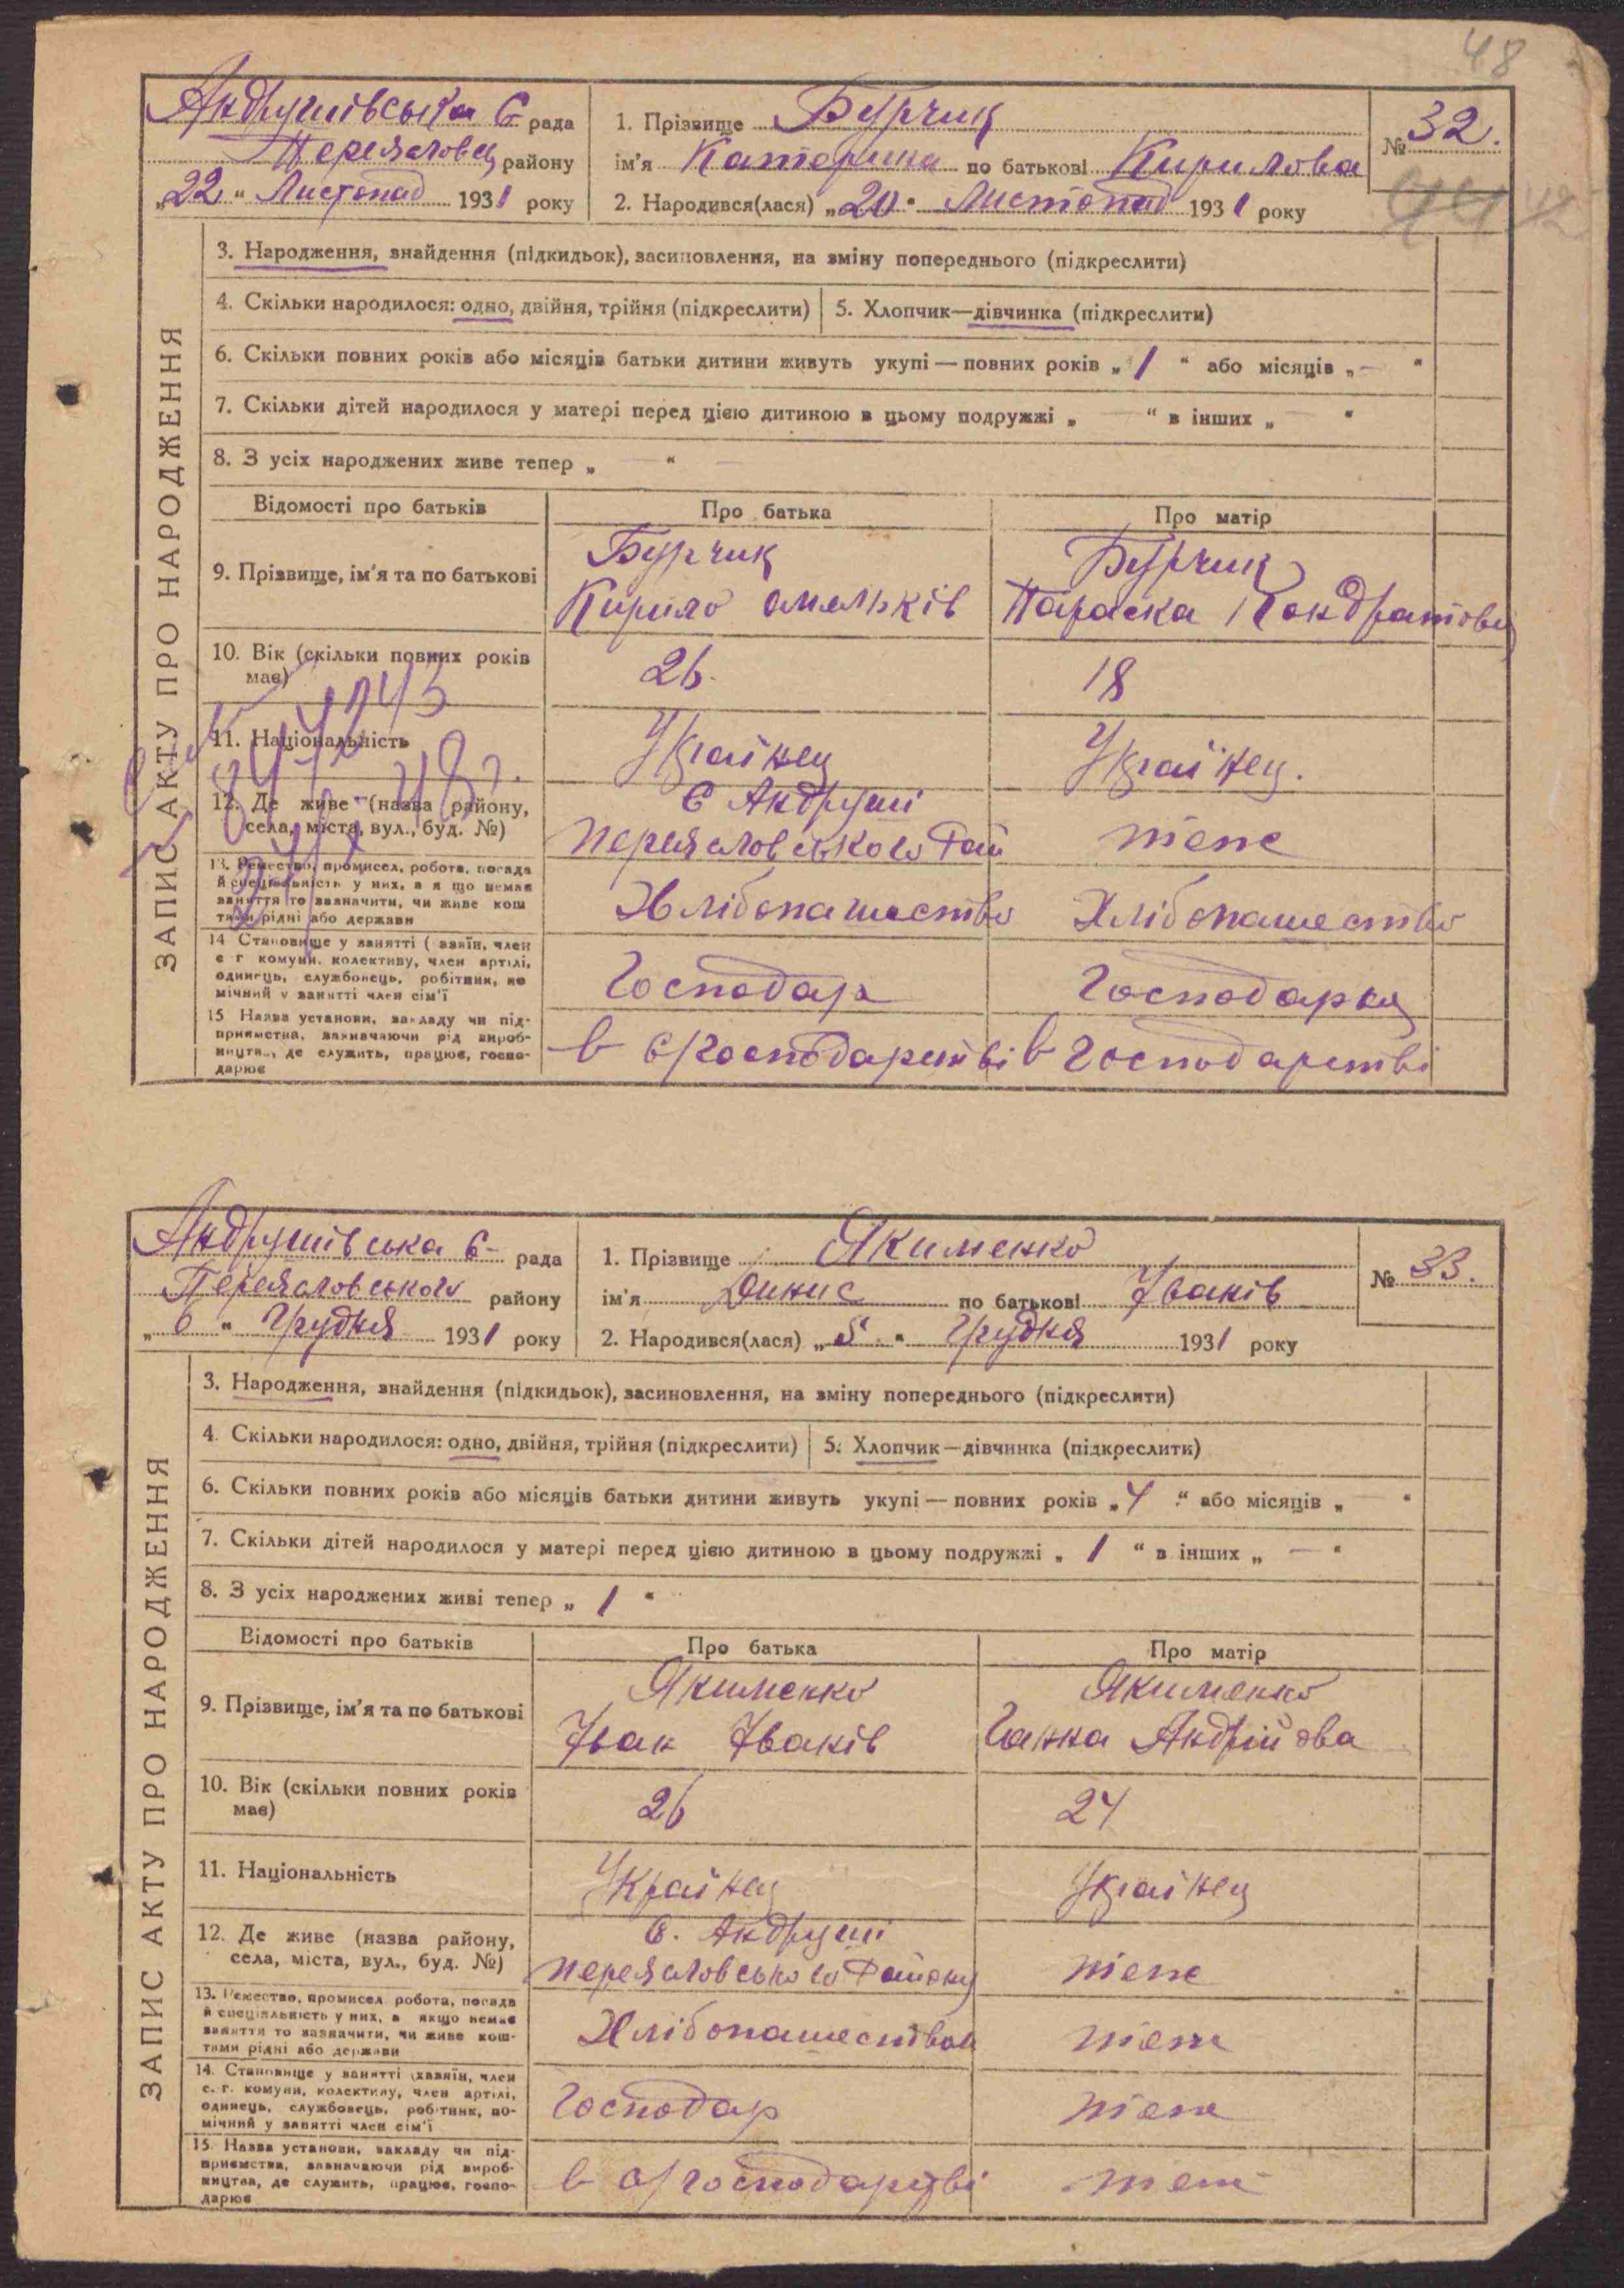 48
Андрушівська С рада
Переяславск району
„22“ Листопад 1931 року
1. Прізвище Бурчик
ім'я Катерина по батькові Кирилова
2. Народився(лася) „20“ Листопад 1931 року
№ 32.
ЗАПИС АКТУ ПРО НАРОДЖЕННЯ
3. Народження, знайдення (підкидьок), засиновлення, на зміну попереднього (підкреслити)
4. Скільки народилося: одно, двійня, трійня (підкреслити) 5. Хлопчик—дівчинка (підкреслити)
6. Скільки повних років або місяців батьки дитини живуть укупі — повних років „1“ або місяців „—“
7. Скільки дітей народилося у матері перед цією дитиною в цьому подружжі „ “ в інших „ “
8. З усіх народжених живе тепер „ “
Відомості про батьків Про батька Про матір
9. Прізвище, ім'я та по батькові
Бурчик
Кирило Омельків
Бурчик
Параска Кондратова
10. Вік (скільки повних років
має)
26. 18
11. Національність Українец Українец.
12. Де живе (назва району,
села, міста, вул., буд. №)
С Андруші
Переяславського рай
теж
13. Ремество, промисел, робота, посада
й спеціяльність у них, а я що немає
заняття то зазначити, чи живе кош
тами рідні або держави
Хлібопашество Хлібопашество
14 Становище у занятті (хазяїн, член
с г комуни, колективу, член артілі,
одинець, службовець, робітник, по
мічний у занятті член сім'ї
Господар Господарка
15 Назва установи, закладу чи під-
приємства, зазначаючи рід вироб-
ництва, де служить, працює, госпо-
дарює
в с/господарстві в господарстві
Андрушівська С- рада
Переяславського району
„6“ Грудня 1931 року
1. Прізвище Якименко
ім'я Динис по батькові Іванів
2. Народився(лася) „5“ Грудня 1931 року
№ 33.
ЗАПИС АКТУ ПРО НАРОДЖЕННЯ
3. Народження, знайдення (підкидьок), засиновлення, на зміну попереднього (підкреслити)
4. Скільки народилося: одно, двійня, трійня (підкреслити) 5. Хлопчик—дівчинка (підкреслити)
6. Скільки повних років або місяців батьки дитини живуть укупі — повних років „4“ або місяців „ “
7. Скільки дітей народилося у матері перед цією дитиною в цьому подружжі „1“ в інших „—“
8. З усіх народжених живі тепер „1“
Відомості про батьків Про батька Про матір
9. Прізвище, ім'я та по батькові
Якименко
Іван Іванів
Якименко
Ганна Андрійова
10. Вік (скільки повних років
має)
26 24
11. Національність Українец Українец
12. Де живе (назва району,
села, міста, вул., буд. №)
С. Андруші
Переяславського району
теж
13. Ремество, промисел робота, посада
й спеціяльність у них, а якщо немає
заняття то зазначити, чи живе кош-
тами рідні або держави
Хлібопашеством теж
14. Становище у занятті (хазяїн, член
с. г. комуни, колективу, член артілі,
одинець, службовець, робітник, по-
мічний у занятті член сім'ї
Господар теж
15. Назва установи, закладу чи під-
приємства, зазначаючи рід вироб-
ництва, де служить, працює, госпо-
дарює
в с/господарстві теж